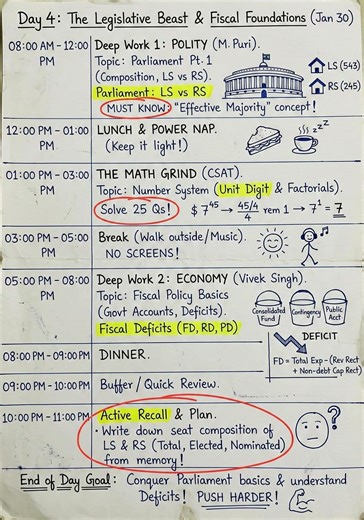 Day 4: The Legislative Beast & Fiscal Foundations (Jan 30)
08:00 AM - 12:00 PM
Deep Work 1: POLITY (M. Puri).
Topic: Parliament Pt. 1
(Composition, LS vs RS).
Parliament: LS vs RS
MUST KNOW: "Effective Majority" concept!
LS (543)
RS (245)
12:00 PM - 01:00 PM
LUNCH & POWER NAP.
(Keep it light!)
zzz
01:00 PM - 03:00 PM
THE MATH GRIND (CSAT).
Topic: Number System (Unit Digit & Factorials).
Solve 25 Qs!
$ 7^45 → 45/4/4 rem 1 → 7^1 = 7
03:00 PM - 05:00 PM
Break (Walk outside/Music).
NO SCREENS!
05:00 PM - 08:00 PM
Deep Work 2: ECONOMY (Vivek Singh).
Topic: Fiscal Policy Basics
(Govt Accounts, Deficits).
Fiscal Deficits (FD, RD, PD)
Consolidated Fund
Contingency
Public Acct
DEFICIT
FD = Total Exp - (Rev Rect
+ Non-debt Cap Rect)
08:00 PM - 09:00 PM
DINNER.
09:00 PM - 10:00 PM
Buffer / Quick Review.
10:00 PM - 11:00 PM
Active Recall & Plan.
• Write down seat composition of
LS & RS (Total, Elected, Nominated)
from memory!
?
End of Day Goal: Conquer Parliament basics & understand
Deficits! PUSH HARDER!